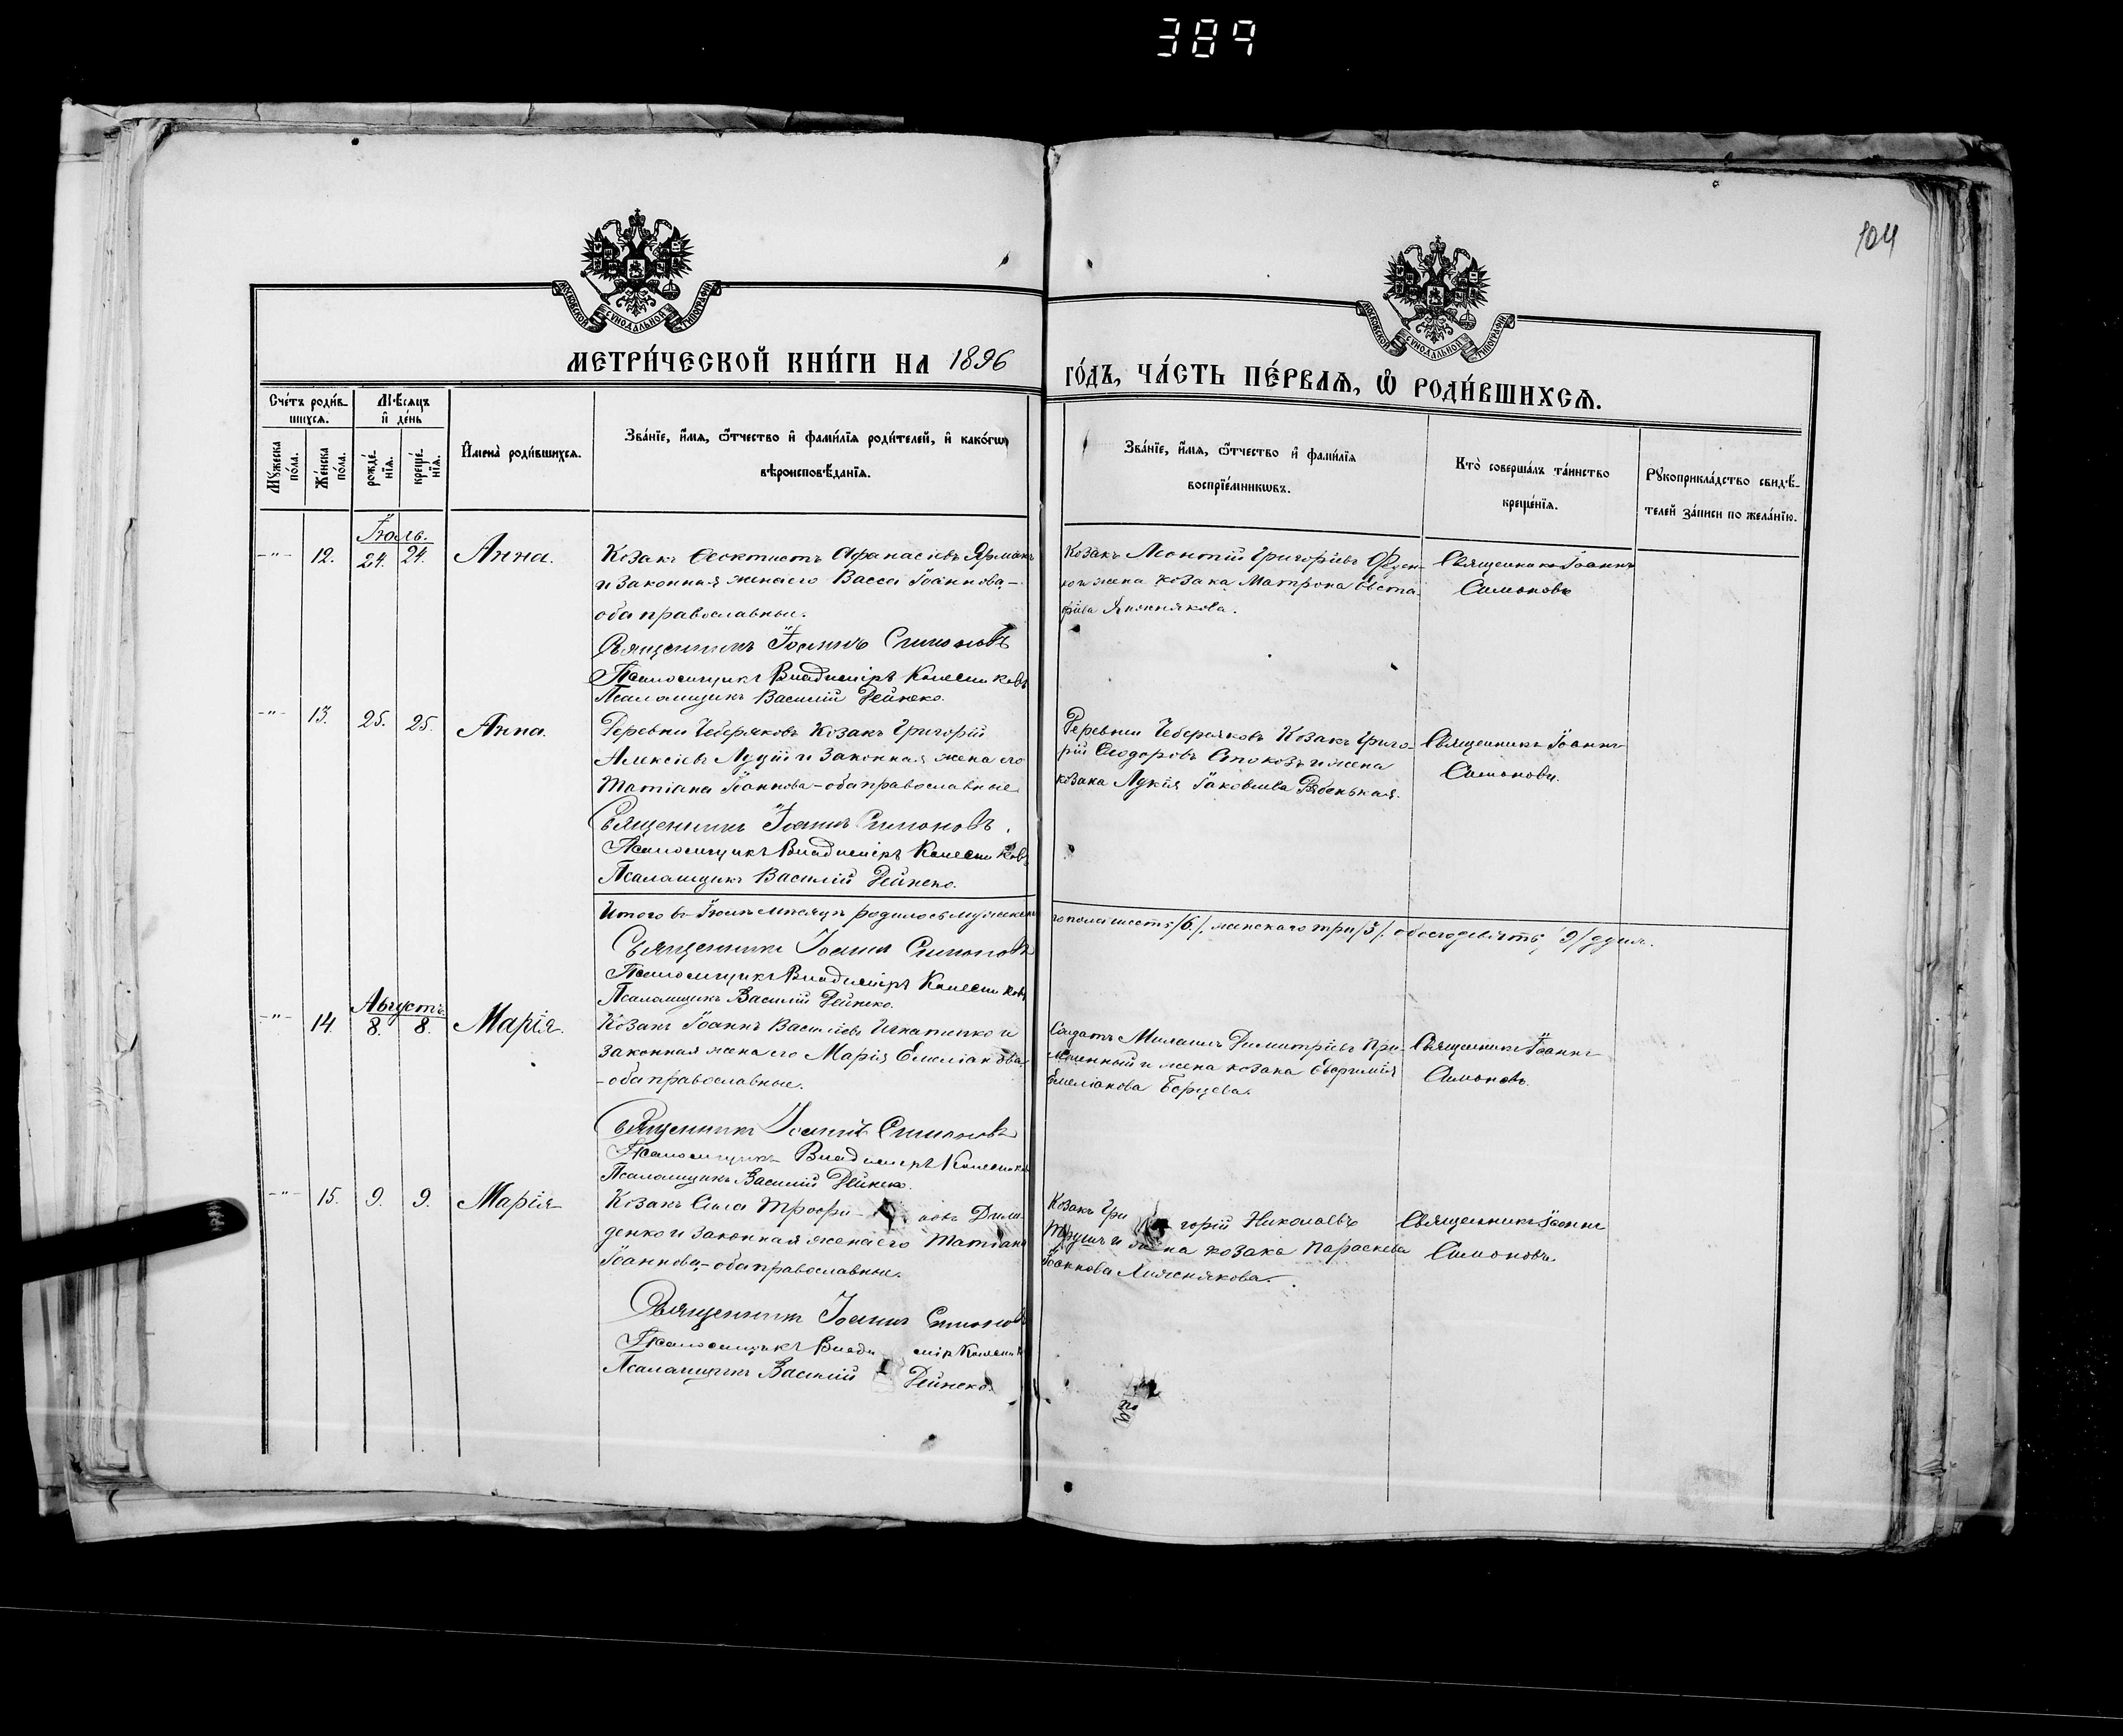 389
104
МОСКОВСКОЙ СѴНОДАЛЬНОЙ ТИПОГРАФІИ
МОСКОВСКОЙ СѴНОДАЛЬНОЙ ТИПОГРАФІИ
МЕТРИ́ЧЕСКОЙ КНИ́ГИ НА 1896
ГО́ДЪ, ЧА́СТЬ ПЕ́РВАѦ, Ѡ҆ РОДИ́ВШИХСѦ.
Сче́тъ роди́в-
шихсѧ.
Мѣ́сѧцъ
и҆ де́нь
Мꙋ́жеска
по́ла.
Же́нска
по́ла.
рожде́-
нїѧ.
креще́-
нїѧ.
И҆мена̀ роди́вшихсѧ.
Зва́нїе, и҆́мѧ, ѻ҆́тчество и҆ фами́лїѧ роди́телей, и҆ како́гѡ
вѣроисповѣ́данїѧ.
Зва́нїе, и҆́мѧ, ѻ҆́тчество и҆ фами́лїѧ
воспрїе́мникѡвъ.
Кто̀ соверша́лъ та́инство
креще́нїѧ.
Рꙋкоприкла́дство свидѣ́-
телей за́писи по жела́нїю.
Іюль.
-"- 12. 24. 24. Анна.
Козакъ Ѳеоктистъ Аѳанасіевъ Ярмакъ
и законная жена его Васса Іоаннова,-
оба православные.
Священникъ Іоаннъ Симоновъ
Псаломщикъ Владиміръ Колесниковъ
Псаломщикъ Василій Дейнеко.
Козакъ Леонтій Григоріевъ
жена козака Матрона Евста-
фіева
Священникъ Іоаннъ
Симоновъ
-"- 13. 25. 25. Анна.
Деревни Чеберяковъ Козакъ Григорій
Алексіевъ Луцій и законная жена его
Татіана Іоаннова-оба православные
Священникъ Іоаннъ Симоновъ.
Псаломщикъ Владиміръ Колесниковъ
Псаломщикъ Василій Дейнеко.
Деревни Чеберяковъ Козакъ Григо-
рій Ѳеодоровъ и жена
козака Лукія Іаковлева Рябенькая.
Священникъ Іоаннъ
Симоновъ.
Итого въ Іюлѣ мѣсяцѣ родилось мужеска-
го пола шесть /6/, женскаго три /3/ обоего девять /9/ душъ.
Священникъ Іоаннъ Симоновъ
Псаломщикъ Владиміръ Колесниковъ
Псаломщикъ Василій Дейнеко.
Августъ.
-"- 14 8. 8. Марія.
Козакъ Іоаннъ Василіевъ Игнатенко и
законная жена его Марія Емеліанова,
-оба православные.
Священникъ Іоаннъ Симоновъ
Псаломщикъ Владиміръ Колесниковъ
Псаломщикъ Василій Дейнеко.
Солдатъ Димитріевъ При-
и жена козака Евфимія
Емеліанова Борцева.
Священникъ Іоаннъ
Симоновъ.
-"- 15. 9. 9. Марія
Козакъ Сила Трофи- мовъ Дили-
денко и законная жена его Татіана
Іоаннова,-оба православные.
Священникъ Іоаннъ Симоновъ
Псаломщикъ Влади міръ Колесник
Псаломщикъ Василій Дейнеко.
Козакъ Гри горій Николаевъ
Трушъ и жена козака Параскева
Іоаннова
Священникъ Іоаннъ
Симоновъ.